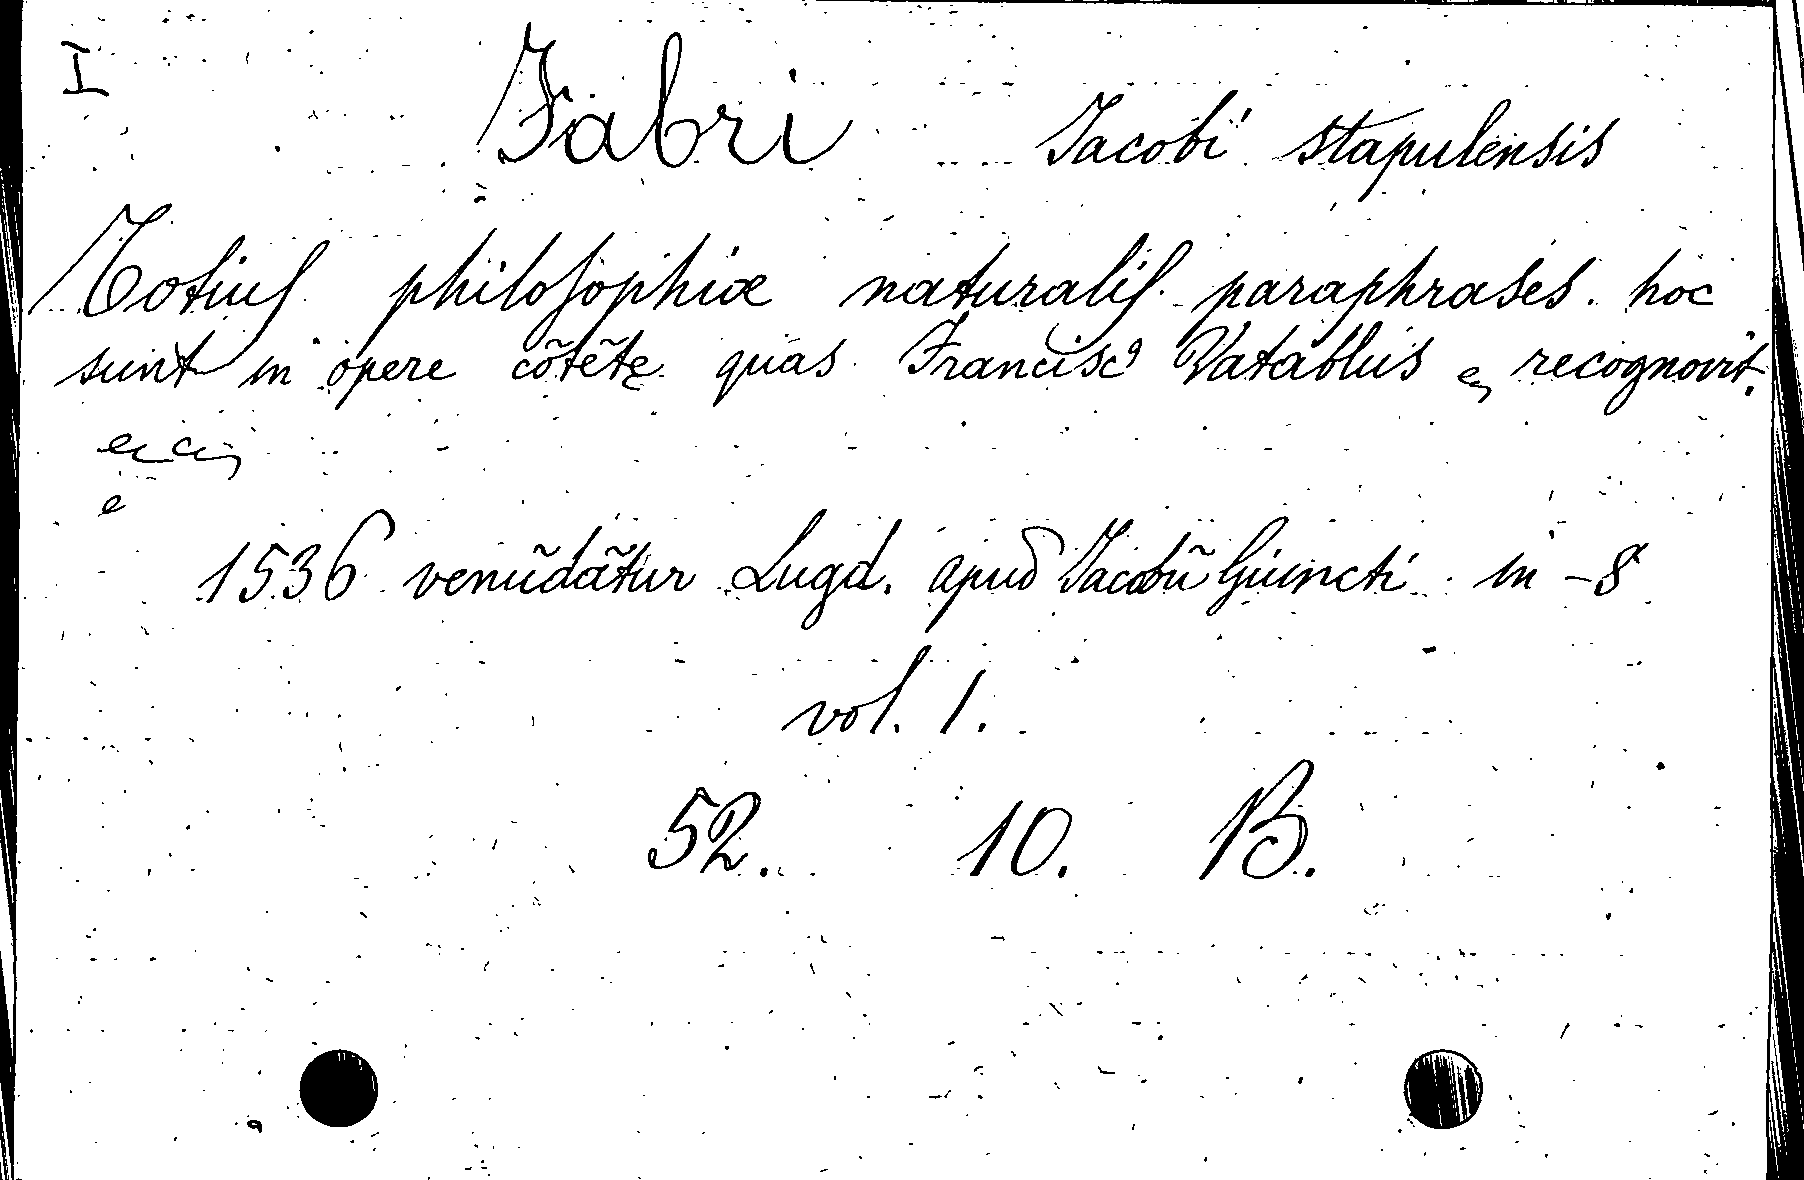 I
Fabri Jacobi stapulensis
Totiuſ philoſophiæ naturaliſ paraphrases. hoc
sunt in opere cõtẽtę quas Franciscꝰ Vatablus recognovit.
1536 venũdãtur Lugd. apud Jacobũ Giuncti in -8
vol. 1.
52. 10. B.